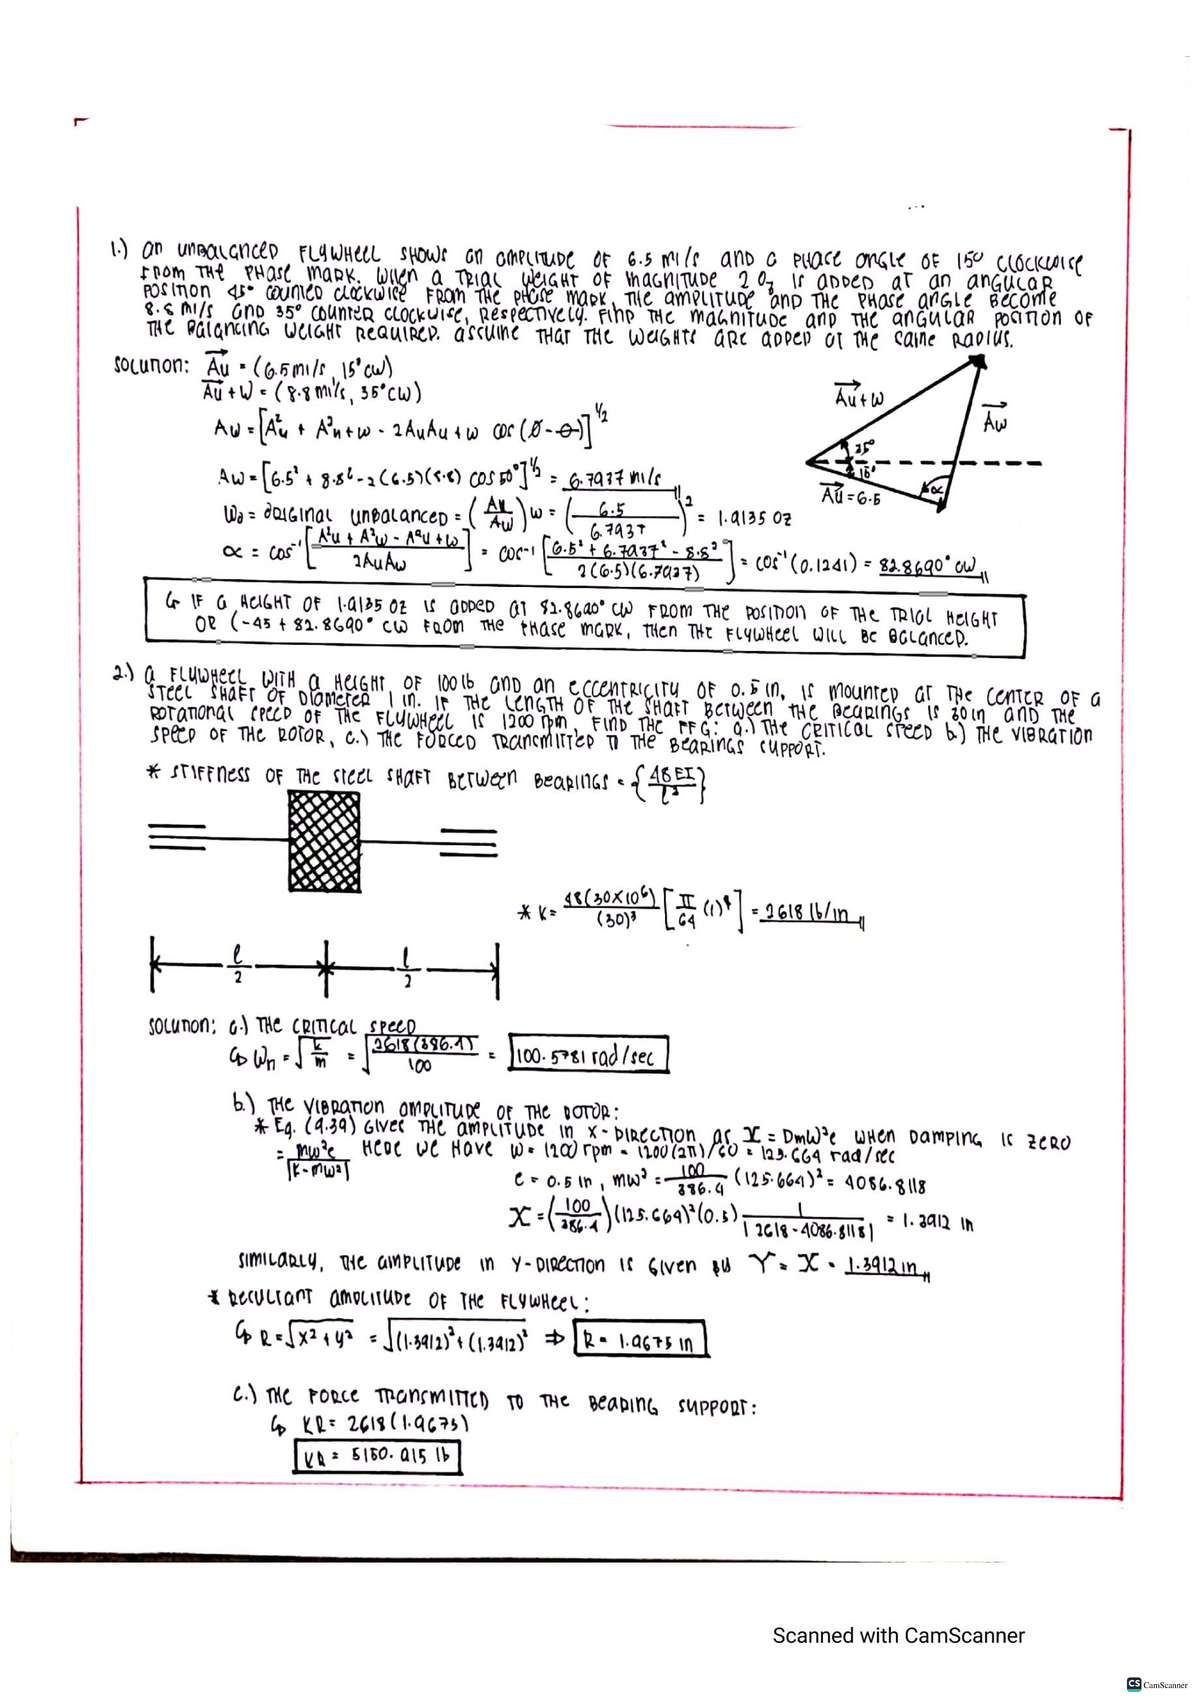 1.) An unbalanced flywheel shows an amplitude of 6.5 mi/s and a phase angle of 15° clockwise
from the phase mark. When a trial weight of magnitude 2 oz is added at an angular
position 45° counted clockwise from the phase mark, the amplitude and the phase angle become
8.8 mi/s and 35° counter clockwise, respectively. Find the magnitude and the angular position of
the balancing weight required. Assume that the weights are added at the same radius.
Solution: Au = (6.5 mi/s, 15° cw)
Au + w = (8.8 mi/s, 35° cw)
Aw = [A²u + A²u+w - 2AuAu+w cos (Ø-θ)]^1/2
Aw = [6.5² + 8.8² - 2(6.5)(8.8) cos 50°]^1/2 = 6.7937 mi/s
Wo = original unbalanced = (Au/Aw) w = (6.5/6.7937)² = 1.9135 oz
α = cos⁻¹ [A²u + A²w - A²u+w / 2AuAw] = cos⁻¹ [6.5² + 6.7937² - 8.8² / 2(6.5)(6.7937)] = cos⁻¹ (0.1241) = 82.8690° cw
Au+w
Aw
35°
15°
Au = 6.5
α
↳ If a height of 1.9135 oz is added at 82.8690° cw from the position of the trial height
or (-45 + 82.8690° cw from the phase mark, then the flywheel will be balanced.
2.) A flywheel with a height of 100 lb and an eccentricity of 0.5 in, is mounted at the center of a
steel shaft of diameter 1 in. If the length of the shaft between the bearings is 30 in and the
rotational speed of the flywheel is 1200 rpm, find the ffg: a.) the critical speed b.) the vibration
speed of the rotor, c.) the forced transmitted to the bearings support.
* Stiffness of the steel shaft between bearings = {48EI/l³}
* K = 48(30x10⁶)/(30)³ [π/64 (1)⁴] = 2618 lb/in
l/2 l/2
Solution: a.) The critical speed
↳ Wn = √k/m = √2618(386.4)/100 = 100.5781 rad/sec
b.) The vibration amplitude of the rotor:
* Eq. (9.39) gives the amplitude in x-direction as X = DmW²e when damping is zero
= mw²e/|k-mw²| Here we have w = 1200 rpm = 1200(2π)/60 = 125.664 rad/sec
e = 0.5 in, mw² = 100/386.4 (125.664)² = 4086.8118
X = (100/386.4)(125.664)²(0.5) 1/|2618-4086.8118| = 1.3912 in
Similarly, the amplitude in y-direction is given by Y = X = 1.3912 in
* Resultant amplitude of the flywheel:
↳ R = √x²+y² = √(1.3912)²+(1.3912)² ⇒ R = 1.9675 in
c.) The force transmitted to the bearing support:
↳ KR = 2618(1.9675)
KR = 5150.915 lb
Scanned with CamScanner
CS CamScanner